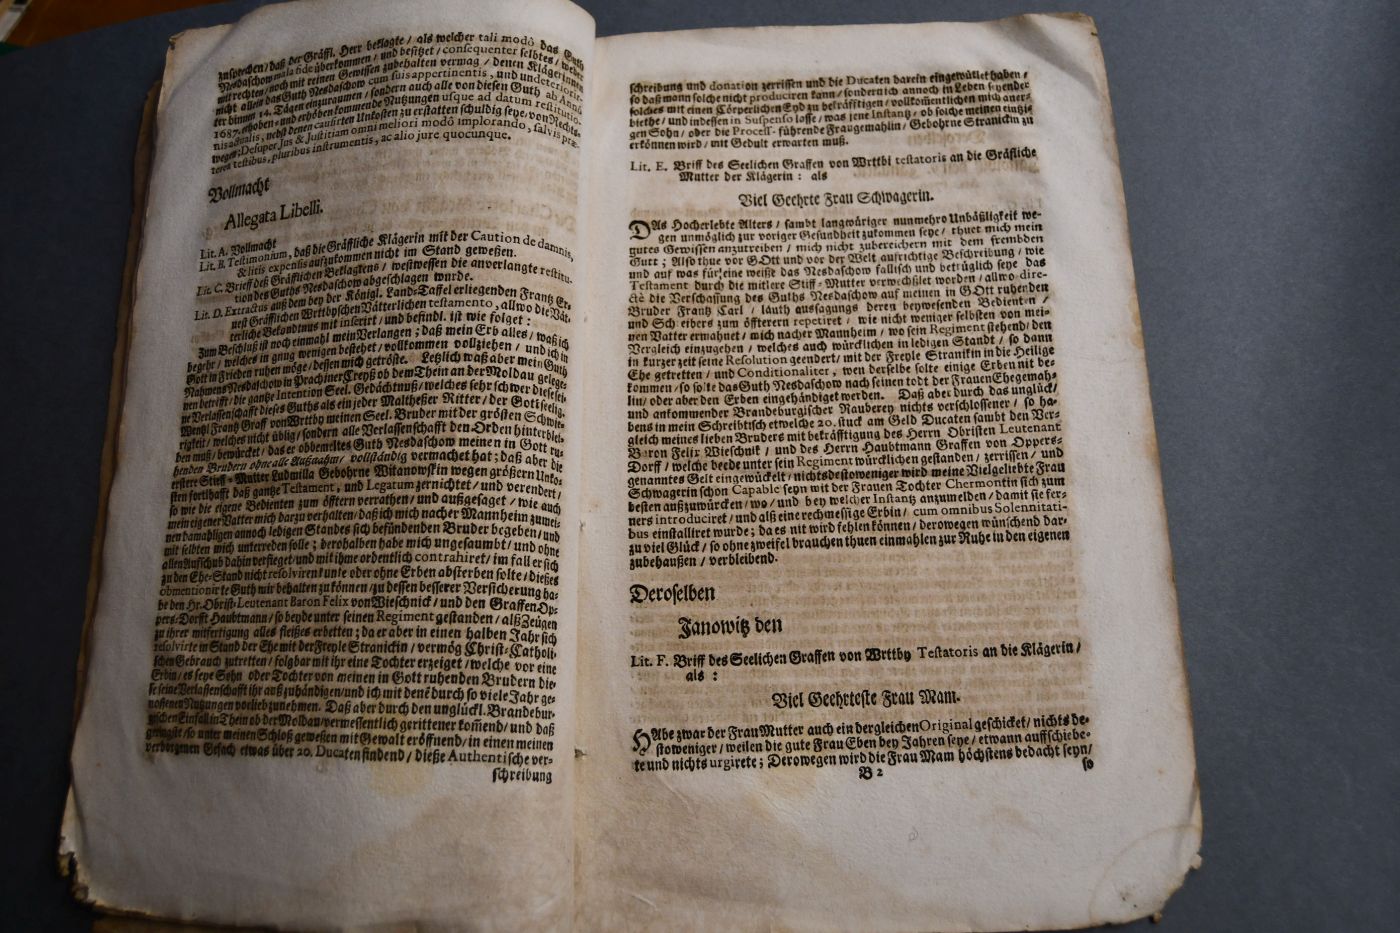 zusprechen / daß der Gräffl. Herr beklagte / als welcher tali modô das Guth
Nesdaschow mala fide überkommen / und besitzet / consequenter selbtes / weder
mit rechten / noch mit reinen Gewissen zubehalten vermag / denen Klägerinnen
nicht allein das Guth Nesdaschow cum suis appertinentis, und undeteriorir-
ter binnen 14. Tägen einzuraumen / sondern auch alle von diesen Guth ab Anno
1687. erhoben- und erhöben kommende Nutzungen usque ad datum restitutio-
nis actualis, nebst denen causirten Unkosten zu erstatten schuldig seye / von Rechts-
wegen; Desuper Jus & Justitiam omni meliori modô implorando, salvis præ-
terea testibus, pluribus instrumentis, ac alio jure quocunque.
Vollmacht
Allegata Libelli.
Lit. A. Vollmacht
Lit. B. Testimonium, daß die Gräffliche Klägerin mit der Caution de damnis,
& litis expensis aufzukommen nicht im Stand geweßen.
Lit. C. Brieff deß Gräfflichen Beklagtens / westwessen die anverlangte restitu-
tion des Guths Nesdaschow abgeschlagen wurde.
Lit. D. Extractus auß dem bey der Königl. Land-Taffel erliegenden Frantz Er-
nest Gräfflichen Wrttbyschen Vätterlichen testamento, allwo die Vät-
terliche Bekondtnus mit inserirt / und befindl. ist wie folget:
Zum Beschluß ist noch einmahl mein Verlangen; daß mein Erb alles / waß ich
begehr / welches in gnug wenigen bestehet / vollkommen vollziehen / und ich in
Gott in Frieden ruhen möge / dessen mich getröste. Letzlich waß aber mein Guth
Nahmens Nesdaschow in Prachiner Creyß ob dem Thein an der Moldau gelege-
nen betrifft / die gantze Intention Seel. Gedächtnuß / welches sehr schwer diese sei-
ne Verlassenschafft dieses Guths als ein jeder Maltheßer Ritter / der Gottseelig.
Wentzl Frantz Graff von Wrttby meinen Seel. Bruder mit der grösten Schwie-
rigkeit / welches nicht üblig / sondern alle Verlassenschafft den Orden hinterblei-
ben muß / bewürcket / das er obbemeltes Guth Nesdaschow meinen in Gott ru-
henden Brudern ohne alle Außnahm / vollständig vermachet hat; daß aber die
erstere Stieff-Mutter Ludmilla Gebohrne Witanowskin wegen größern Unko-
sten forthafft daß gantze Testament, und Legatum zernichtet / und verendert /
so wie die eigene Bedienten zum öfftern verrathen / und außgesaget / wie auch
mein eigener Vatter mich darzu verhalten / daß ich mich nacher Mannheim zu mei-
nen damahligen annoch ledigen Standes sich befündenden Bruder begeben / und
mit selbten mich unterreden solle; derohalben habe mich ungesaumbt / und ohne
allen Aufschub dahin verfieget / und mit ihme ordentlich contrahiret / im fall er sich
zu den Ehe-Stand nicht resolviren kunte oder ohne Erben absterben solte / dießes
obmentionirte Guth mir behalten zu können / zu dessen besserer Versicherung ha-
be den Hr. Obrist-Leutenant Baron Felix von Wieschnick / und den Graffen Op-
pers-Dorfft Haubtmann / so beyde unter seinen Regiment gestanden / alß Zeügen
zu ihrer mitfertigung alles fleißes erbetten; da er aber in einen halben Jahr sich
resolvirte in Stand der Ehe mit der Freyle Stranickin / vermög Christ-Catholi-
schen Gebrauch zutretten / folgbar mit ihr eine Tochter erzeiget / welche vor eine
Erbin / es seye Sohn oder Tochter von meinen in Gott ruhenden Brudern die-
se seine Verlassenschafft ihr auß zuhändigen / und ich mit denē durch so viele Jahr ge-
nossenen Nutzungen vorlieb zunehmen. Daß aber durch den unglückl. Brandebur-
gischen Einfall in Thein ob der Moldau / vermessentlich gerittener kom̄end / und daß
geringste / so unter meinen Schloß gewesten mit Gewalt eröffnend / in einen meinen
verborgenen Gefach etwas über 20. Ducaten findend / dieße Authentische ver-
schreibung
schreibung und donation zerrissen und die Ducaten darein eingewütlet haben /
so daß mann solche nicht produciren kann / sondern ich annoch in Leben seyender
solches mit einen Cörperlichen Eyd zu bekräfftigen / vollkomentlichen mich aner-
biethe / und indessen in Suspenso lasse / was jene Instantz / ob solche meinen eintzi-
gen Sohn / oder die Process-führende Fraugemahlin / Gebohrne Stranickin zu
erkönnen wird / mit Gedult erwarten muß.
Lit. E. Briff des Seelichen Graffen von Wrttbi testatoris an die Gräfliche
Mutter der Klägerin: als
Viel Geehrte Frau Schwagerin.
DAs Hocherlebte Alters / sambt langwüriger nunmehro Unbäßligkeit we-
gen unmöglich zur voriger Gesundheit zukommen seye / thuet mich mein
gutes Gewissen anzutreiben / mich nicht zubereichern mit dem frembden
Gutt; Also thue vor GOtt und vor der Welt aufrichtige Beschreibung / wie
und auf was für eine weiße das Nesdaschow fallisch und betrüglich seye das
Testament durch die mitlere Stiff-Mutter verwechßlet worden / allwo dire-
ctè die Verschaffung des Guths Nesdaschow auf meinen in GOtt ruhenden
Bruder Frantz Carl / lauth aussagungs deren beywesenden Bedienten /
und Schreibers zum öffterern repetiret / wie nicht weniger selbsten von mei-
nen Vatter ermahnet / mich nacher Mannheim / wo sein Regiment stehend / den
Vergleich einzugehen / welches auch würcklichen in ledigen Standt / so dann
in kurzer zeit seine Resolution geendert / mit der Freyle Stranikin in die Heilige
Ehe getretten / und Conditionaliter, wen derselbe solte einige Erben nit be-
kommen / so solte das Guth Nesdaschow nach seinen todt der Frauen Ehegemah-
lin / oder aber den Erben eingehändiget werden. Daß aber durch das unglück /
und ankommender Brandeburgischer Rauberey nichts verschlossener / so ha-
bens in mein Schreibtisch etwelche 20. stuck am Geld Ducaten sambt den Ver-
gleich meines lieben Bruders mit bekräfftigung des Herrn Obristen Leutenant
Baron Felix Wieschnik / und des Herrn Haubtmann Graffen von Oppers-
Dorff / welche beede unter sein Regiment würcklichen gestanden / zerrissen / und
genanntes Gelt eingewückelt / nichtsdestoweniger wird meine Vielgeliebte Frau
Schwagerin schon Capable seyn mit der Frauen Tochter Chermontin sich zum
besten außzuwürcken / wo / und bey welcher Instantz anzumelden / damit sie fer-
ners introduciret / und alß eine rechmessige Erbin / cum omnibus Solennitati-
bus einstalliret wurde; da es nit wird fehlen können / derowegen wünschend dar-
zu viel Glück / so ohne zweifel brauchen thuen einmahlen zur Ruhe in den eigenen
zubehaußen / verbleibend.
Deroselben
Janowitz den
Lit. F. Briff des Seelichen Graffen von Wrttby Testatoris an die Klägerin /
als:
Viel Geehrteste Frau Mam.
HAbe zwar der Frau Mutter auch ein dergleichen Original geschicket / nichts de-
stoweniger / weilen die gute Frau Eben bey Jahren seye / etwann aufschiebe-
te und nichts urgirete; Derowegen wird die Frau Mam höchstens bedacht seyn /
B 2
so